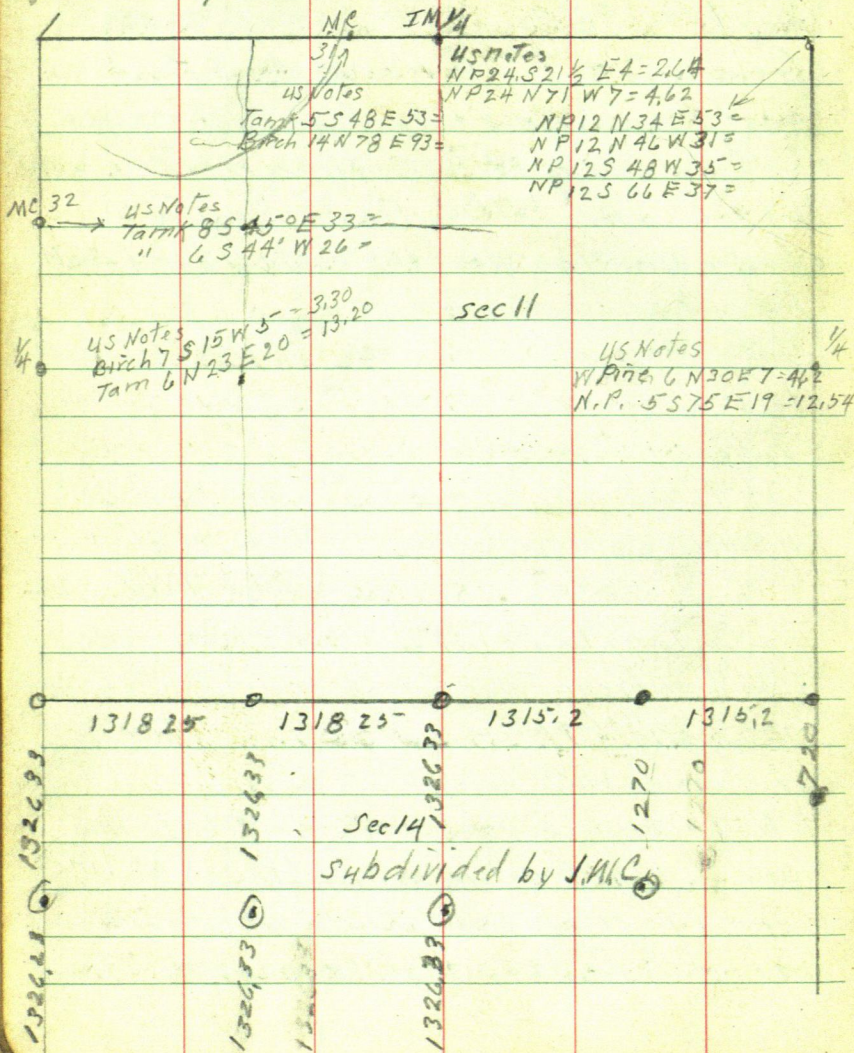 MC
IM 1/4
31
US Notes
NP24 S21½ E4=2.64
NP24 N71 W7=4.62
NP12 N34 E53=
NP12 N46 W31=
NP12S 48W35=
NP12S 66E37=
US Notes
Tam 5 S48E53=
Birch 14N78E93=
MC 32
US Notes
Tamk 8 S45°E33=
" 6 S44° W26=
sec 11
1/4
US Notes
Birch 7 S15W5=3.30
Tam 6 N23E20=13.20
1/4
US Notes
W Pine 6 N30E7=4.62
N.P. 5 S75E19=12.54
1318 25
1318 25
1315.2
1315.2
1326.33
1326.33
1326.33
1270
1270
720
Sec 14
subdivided by J.M.C.
1326.33
1326.33
1326.33